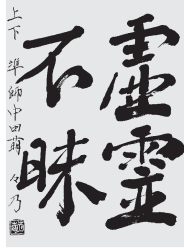 虚霊
不昧
上下 準師 中田萌々乃